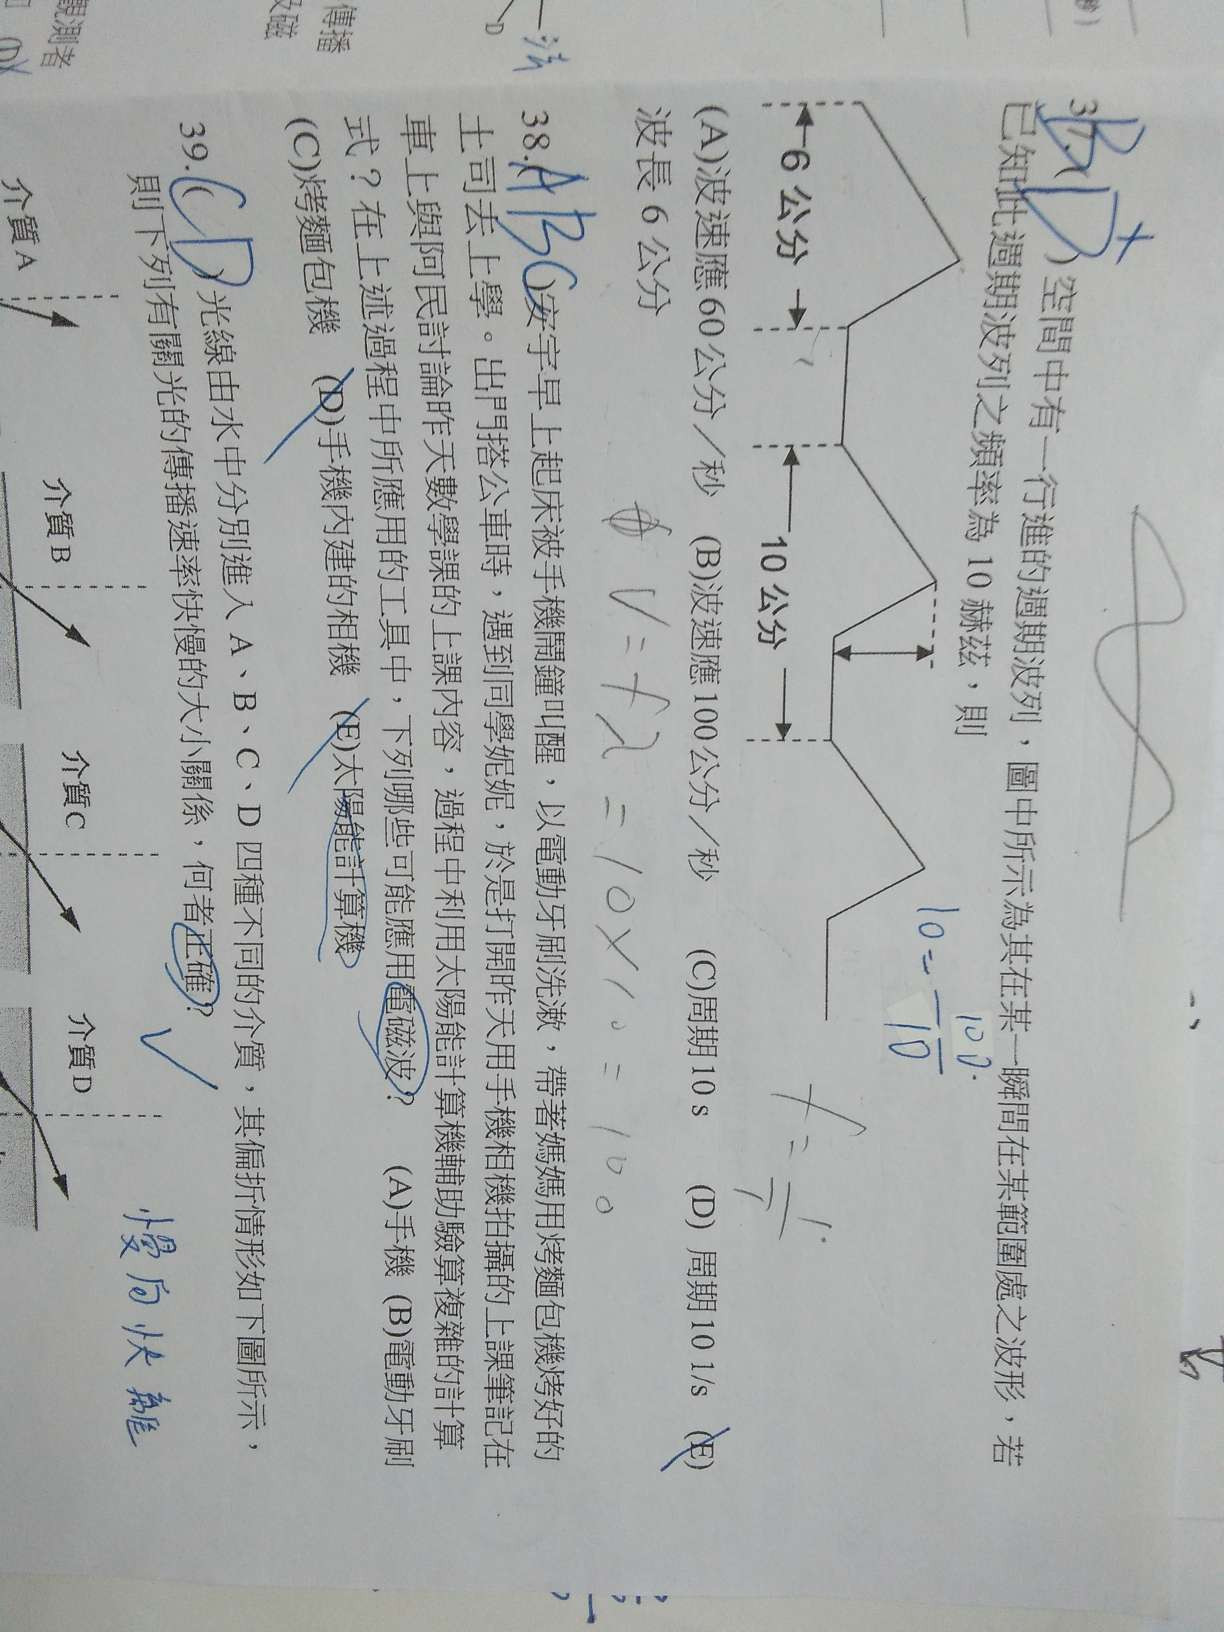 傳播
及磁
觀測者
秒)
D
法
37.(BD)空間中有一行進的週期波列，圖中所示為其在某一瞬間在某範圍處之波形，若
已知此週期波列之頻率為 10 赫茲，則
6 公分
10 公分
10=
100
10
f=1/T
(A)波速應 60 公分／秒 (B)波速應 100 公分／秒 (C)周期 10 s (D) 周期 10 1/s (E)
波長 6 公分
V=fλ=10×10=100
38.(ABC)安宇早上起床被手機鬧鐘叫醒，以電動牙刷洗漱，帶著媽媽用烤麵包機烤好的
土司去上學。出門搭公車時，遇到同學妮妮，於是打開昨天用手機相機拍攝的上課筆記在
車上與阿民討論昨天數學課的上課內容，過程中利用太陽能計算機輔助驗算複雜的計算
式？在上述過程中所應用的工具中，下列哪些可能應用電磁波？ (A)手機 (B)電動牙刷
(C)烤麵包機 (D)手機內建的相機 (E)太陽能計算機
39.(CD)光線由水中分別進入 A、B、C、D 四種不同的介質，其偏折情形如下圖所示，
則下列有關光的傳播速率快慢的大小關係，何者正確？
慢向快離
介質 A
介質 B
介質 C
介質 D